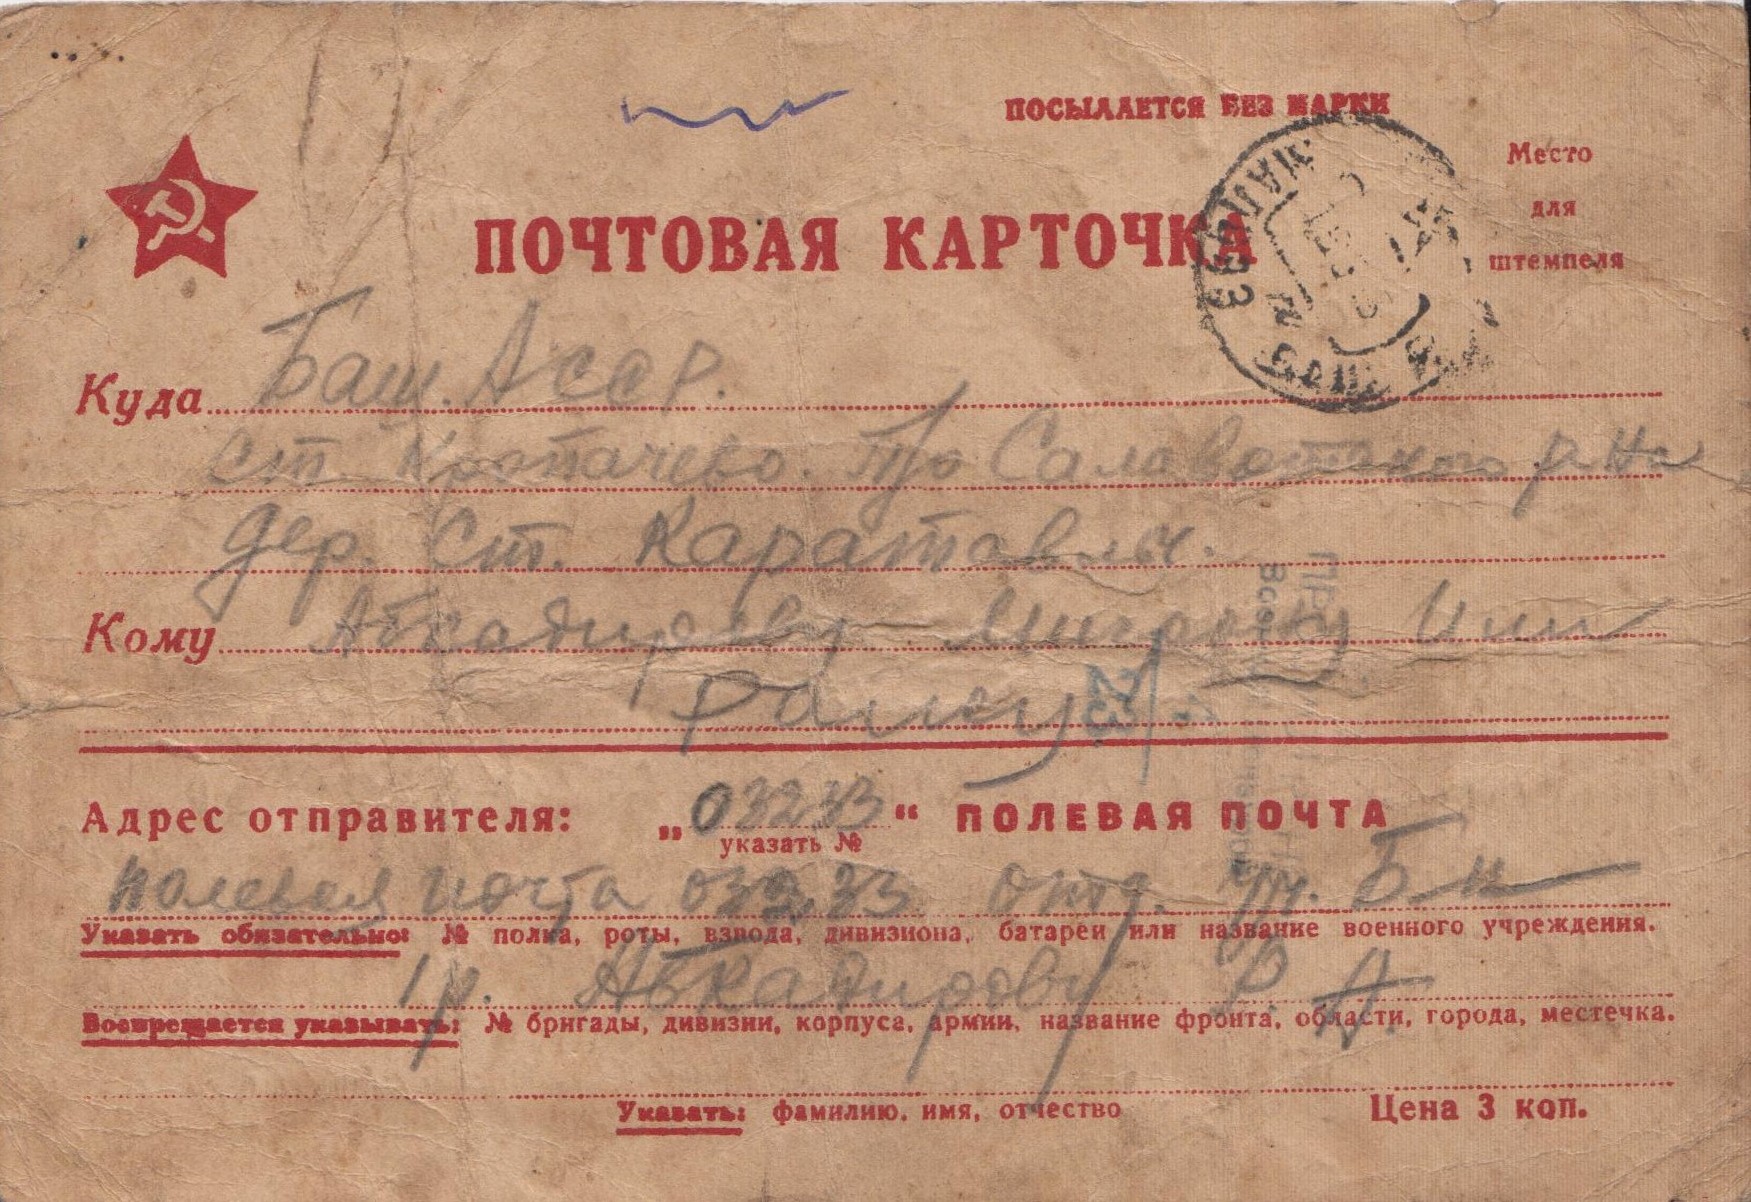 ПОСЫЛАЕТСЯ БЕЗ МАРКИ
Место
для
штемпеля
ПОЧТОВАЯ КАРТОЧКА
Куда Баш. АССР.
ст Кропачево. П/о Салаватского р-на
дер. Ст. Каратавлы.
Кому Абкадирову
Адрес отправителя: „03233“ ПОЛЕВАЯ ПОЧТА
указать №
полевая почта 03233
Указать обязательно: № полка, роты, взвода, дивизиона, батареи или название военного учреждения.
1 р. Абкадирову Р А.
Воспрещается указывать: № бригады, дивизии, корпуса, армии, название фронта, области, города, местечка.
Указать: фамилию, имя, отчество
Цена 3 коп.